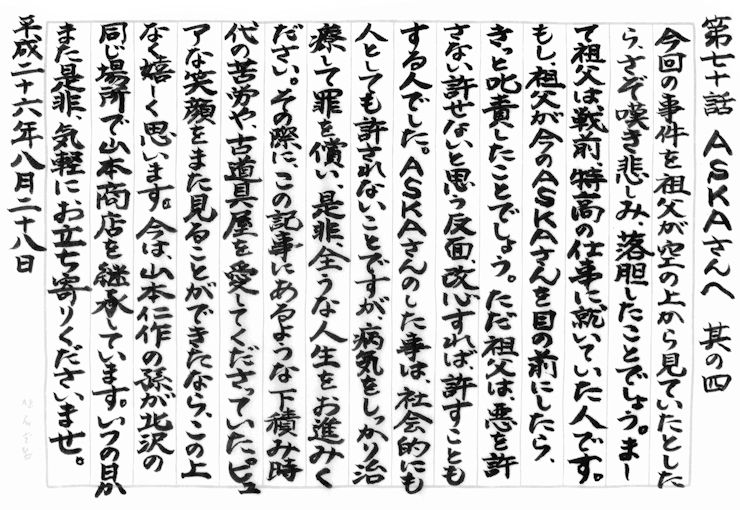 第七十話 ASKAさんへ 其の四
今回の事件を祖父が空の上から見ていたとした
ら、さぞ嘆き悲しみ、落胆したことでしょう。まし
て祖父は戦前、特高の仕事に就いていた人です。
もし、祖父が今のASKAさんを目の前にしたら、
きっと叱責したことでしょう。ただ祖父は、悪を許
さない許せないと思う反面、改心すれば、許すことも
する人でした。ASKAさんのした事は、社会的にも
人としても許されないことですが、病気をしっかり治
療して罪を償い、是非、全うな人生をお進みく
ださい。その際に、この記事にあるような下積み時
代の苦労や、古道具屋を愛してくださっていた、ピュ
アな笑顔をまた見ることができたなら、この上
なく嬉しく思います。今は、山本仁作の孫が北沢の
同じ場所で山本商店を継承しています。いつの日か
また是非、気軽にお立ち寄りくださいませ。
平成二十六年八月二十八日